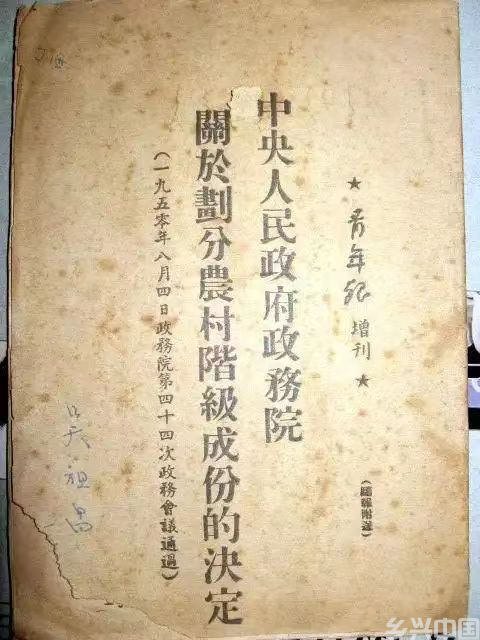 ★ 青年報 增刊 ★
(隨報附送)
中央人民政府政務院
關於劃分農村階級成份的決定
(一九五零年八月四日政務院第四十四次政務會議通過)
吴祖昌
乡兴中国